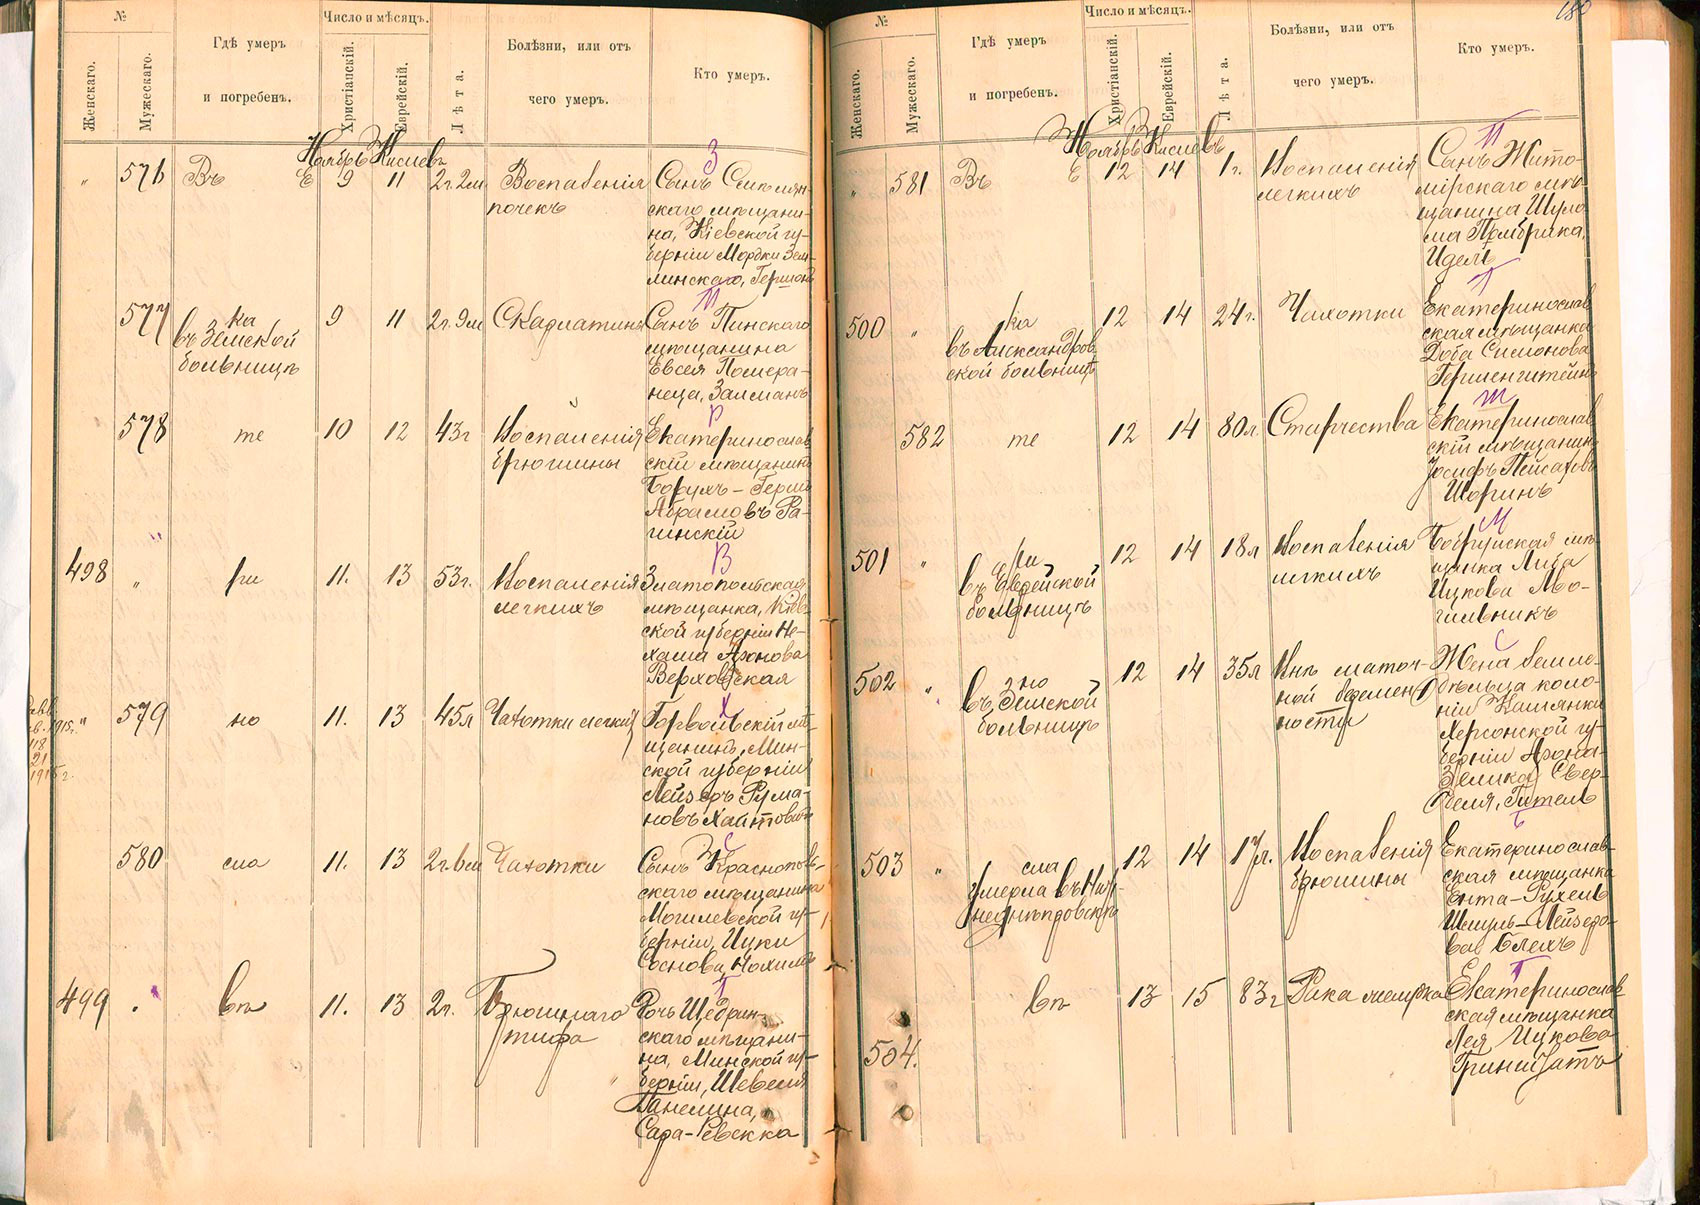 №
Число и мѣсяцъ.
Женскаго.
Мужескаго.
Гдѣ умеръ
и погребенъ.
Христіанскій.
Еврейскій.
Лѣта.
Болѣзни, или отъ
чего умеръ.
Кто умеръ.
Ноябрь Кислевъ
З
" 576 Въ Е 9 11 2г. 2м Воспаленія
почекъ
Сынъ Смѣлян-
скаго мѣщани-
на, Кіевской гу-
берніи Мордки Зем-
линскаго, Гершонъ
П
577 ка
въ Земской
больницѣ
9 11 2г. 9м Скарлатина
Сынъ Пинскаго
мѣщанина
Евсея Помера-
неца, Залманъ
Р
578 те 10 12 43г Воспаленія
брюшины
Екатеринослав
скій мѣщанинъ
Борухъ-Герш
Абрамовъ Ра-
гинскій
В
498 " ри 11. 13 53г. Воспаленія
легкихъ
Златопольская
мѣщанка, Кіев
ской губерніи Не-
хама Аронова
Верховская
Х
" 579 но 11. 13 45л Чахотки легкихъ
1915г.
Горвольскій мѣ
щанинъ, Мин-
ской губерніи
Лейзеръ Рума-
новъ Хаитовичъ
С
580 сла 11. 13 2г. 6м Чахотки
Сынъ Краснополь-
скаго мѣщанина
Могилевской гу-
берніи, Ицки
Соснова, Нохимъ
Г
499 вѣ 11. 13 2г. Брюшнаго
тифа
Дочь Щедрин-
скаго мѣщани-
на, Минской гу-
берніи, Шевеля
Ганелина,
Сара-Ривека
180
№
Число и мѣсяцъ.
Женскаго.
Мужескаго.
Гдѣ умеръ
и погребенъ.
Христіанскій.
Еврейскій.
Лѣта.
Болѣзни, или отъ
чего умеръ.
Кто умеръ.
Ноябрь Кислевъ
П
" 581 Въ Е 12 14 1г. Воспаленія
легкихъ
Сынъ Жито-
мірскаго мѣ-
щанина Шуло-
ма Помбрика,
Идель
Г
500 " ка
въ Александров
ской больницѣ
12 14 24г. Чахотки
Екатеринослав
ская мѣщанка
Доба Симонова
Герценштейнъ
Ш
582 те 12 14 80л. Старчества
Екатеринослав
скій мѣщанинъ
Іосифъ Пейсаховъ
Шоринъ
М
501 " ри
въ Еврейской
больницѣ
12 14 18л Воспаленія
легкихъ
Бобруйская мѣ
щанка Либа
Ицкова Мо-
гильникъ
С
502 " но
въ Земской
больницѣ
12 14 35л Внѣ маточ-
ной беремен
ности
Жена земле-
дѣльца коло-
ніи Камянки
Херсонской гу-
берніи Арона-
Зелика Свер-
Гитель
Б
503 " сла
умерла въ Ниж-
неднѣпровскѣ
12 14 17л. Воспаленія
брюшины
Екатеринослав-
ская мѣщанка
Ента-Рухель
Шмуль-Лейзеро-
ва Блехъ
Г
504. вѣ 13 15 83г Рака желудка
Екатеринослав-
ская мѣщанка
Лея Ицкова